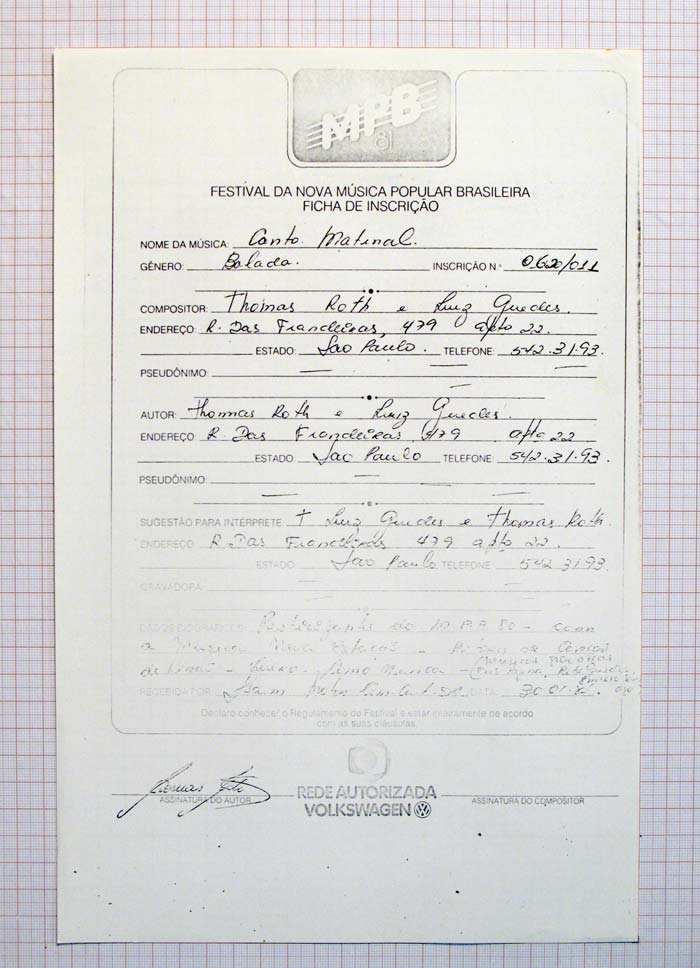 MPB
81
FESTIVAL DA NOVA MÚSICA POPULAR BRASILEIRA
FICHA DE INSCRIÇÃO
NOME DA MÚSICA: Canto Matinal.
GÊNERO: Balada. INSCRIÇÃO N.º 0620/011
COMPOSITOR: Thomas Roth e Luiz Guedes.
ENDEREÇO: R. Das Fiandeiras, 479 apto 22.
ESTADO: Sao Paulo. TELEFONE: 542.31.93.
PSEUDÔNIMO:
AUTOR: Thomas Roth e Luiz Guedes.
ENDEREÇO: R. Das Fiandeiras, 479 apto 22
ESTADO: Sao Paulo TELEFONE: 542.31.93.
PSEUDÔNIMO:
SUGESTÃO PARA INTÉRPRETE: Luiz Guedes e Thomas Roth.
ENDEREÇO: R. Das Fiandeiras 479 apto 22.
ESTADO: Sao Paulo TELEFONE: 542 3193
GRAVADORA:
DADOS BIOGRÁFICOS: do M.P.B 80 - com
a Musica Nova Estação -
RECEBIDA POR: DATA: 30.01.
Declaro conhecer o Regulamento do Festival e estar inteiramente de acordo
com as suas cláusulas.
ASSINATURA DO AUTOR
REDE AUTORIZADA
VOLKSWAGEN
ASSINATURA DO COMPOSITOR